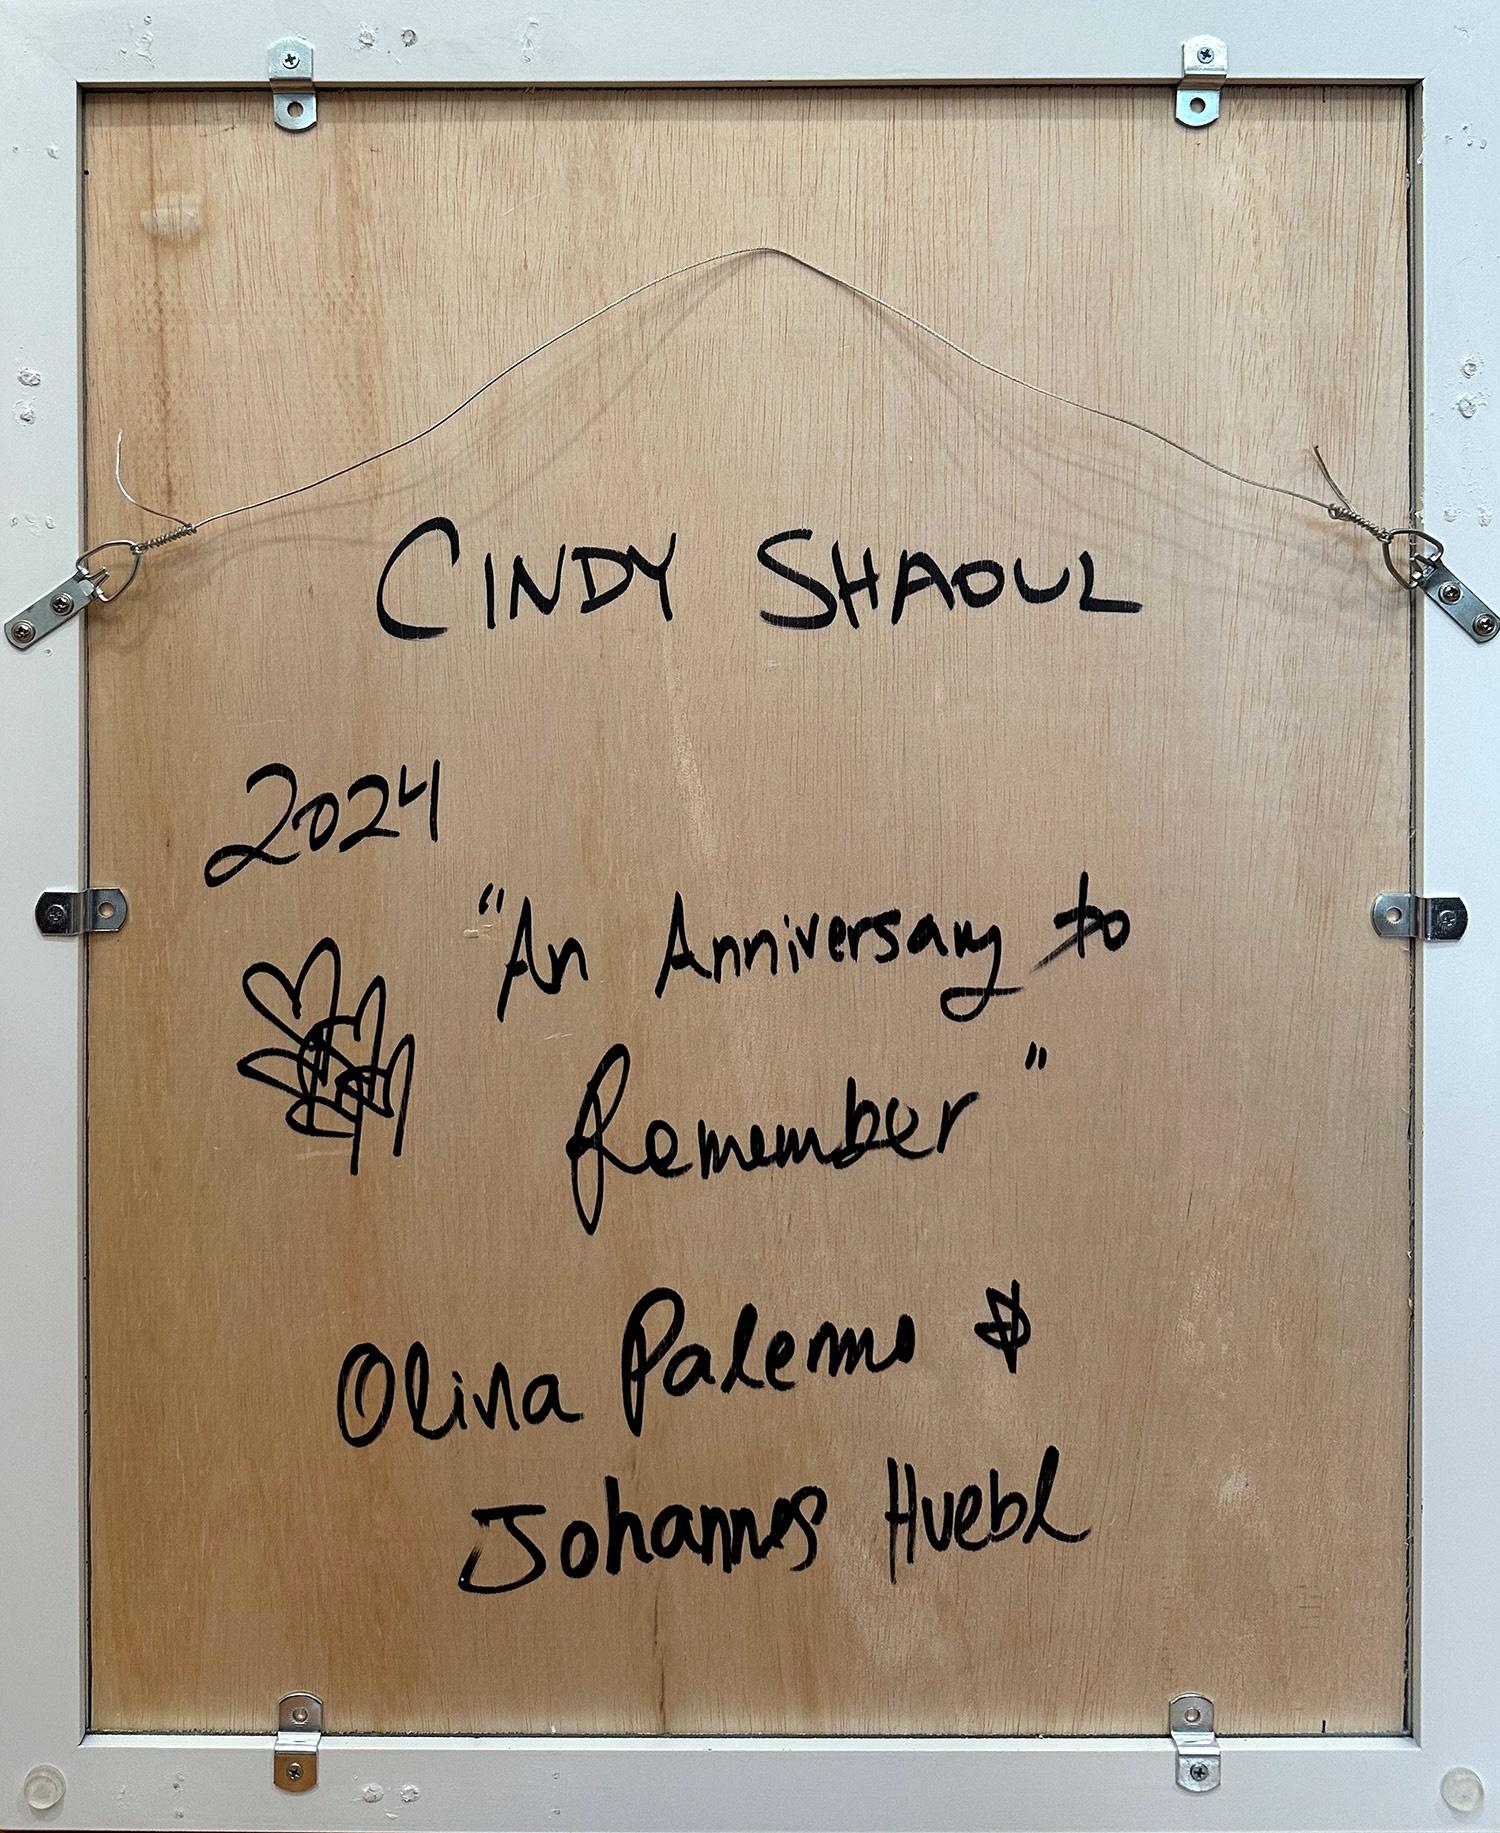 CINDY SHAOUL
2024
"An Anniversary to
Remember"
Olivia Palermo &
Johannes Huebl